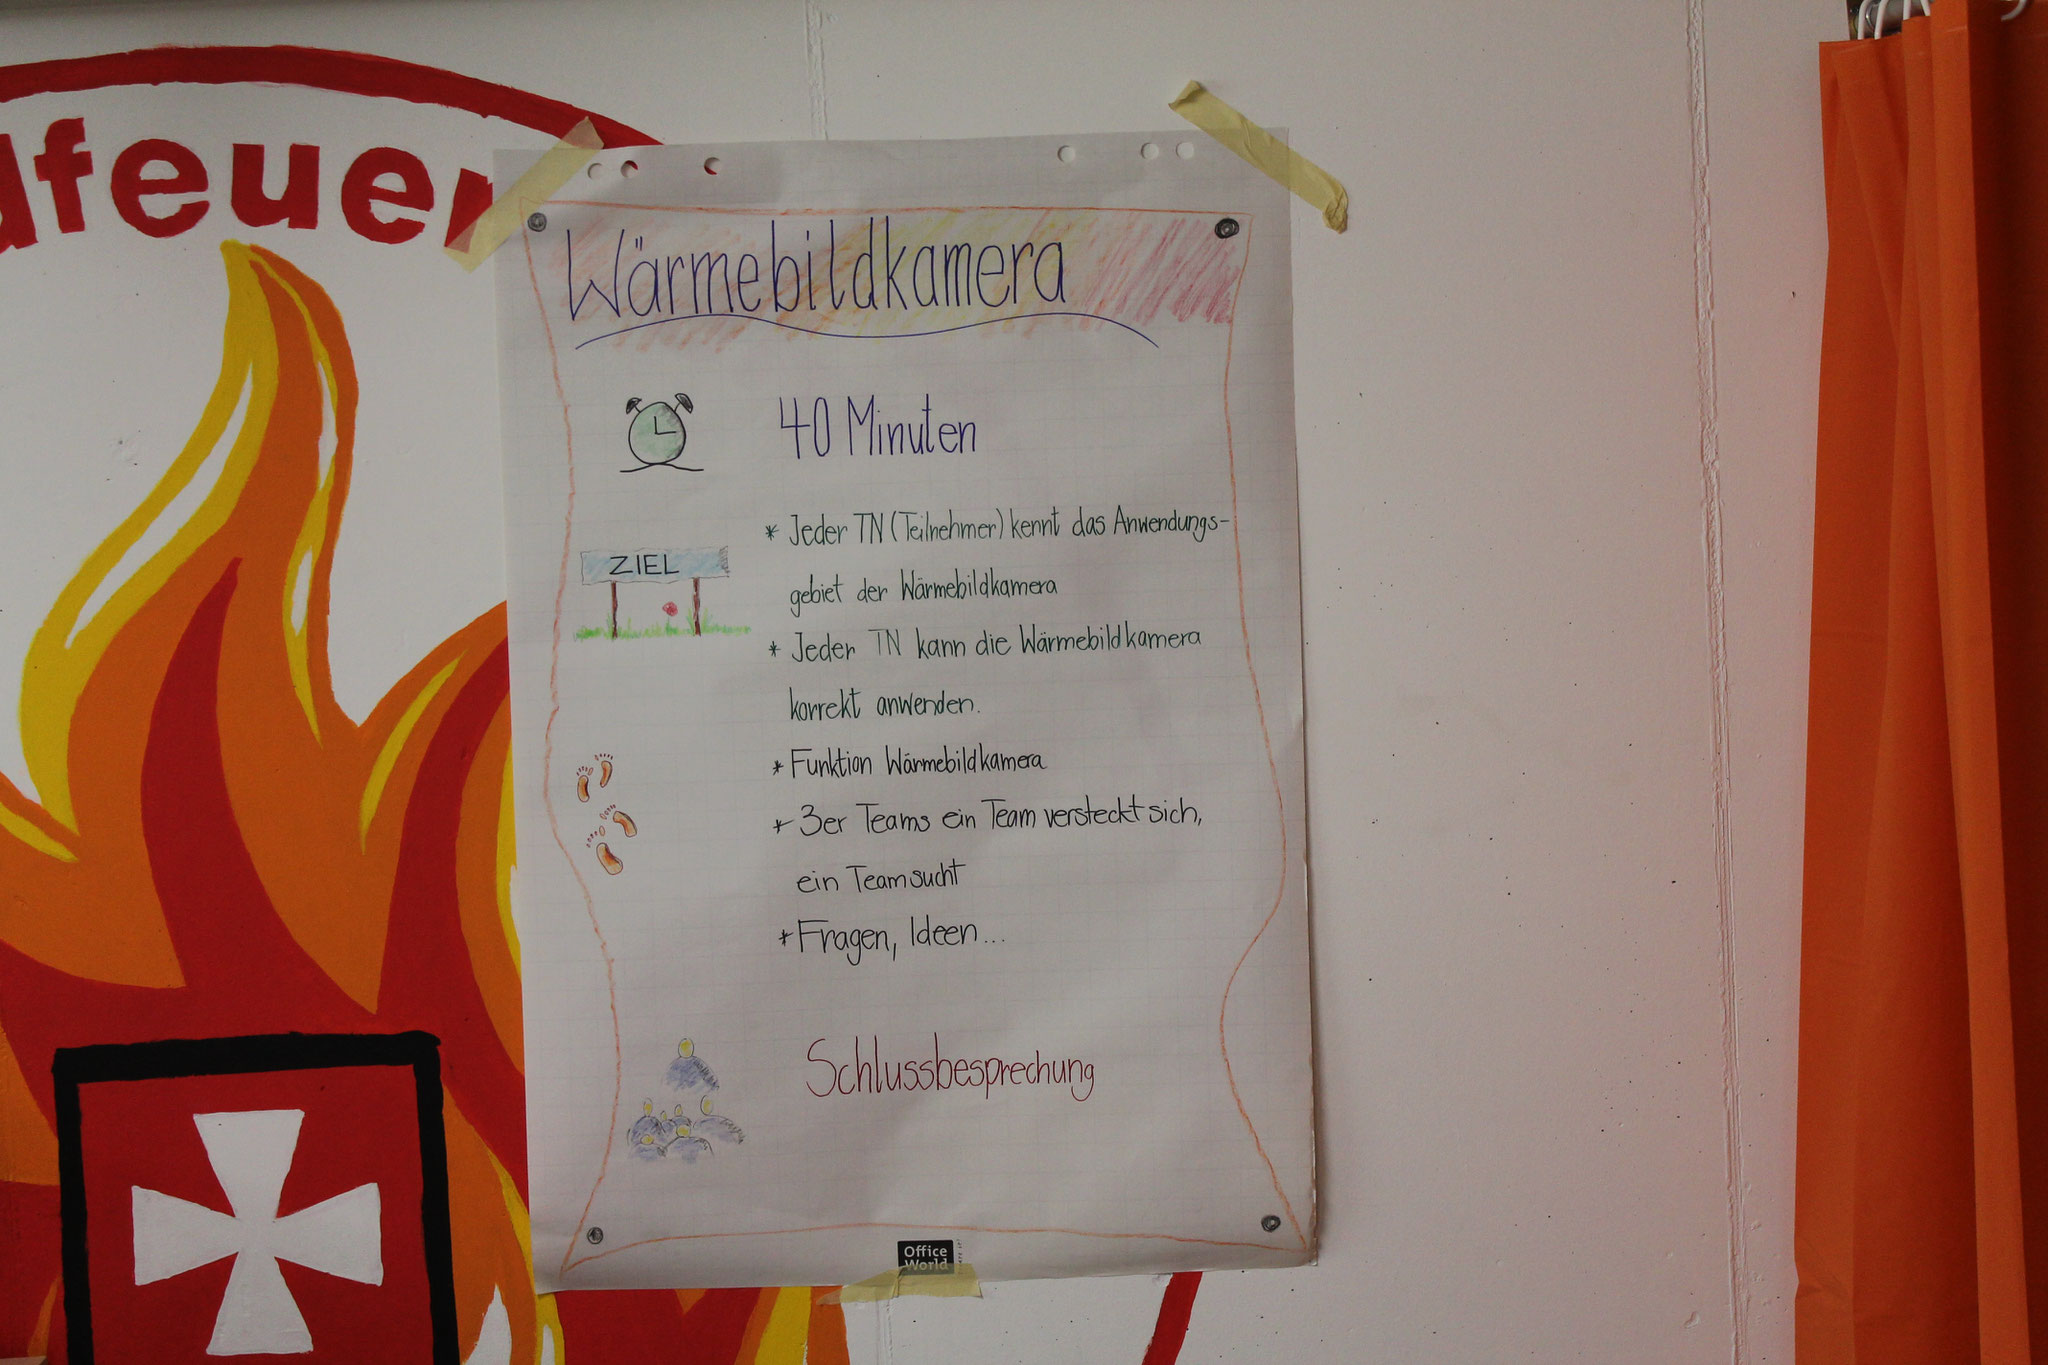 dfeuer
Wärmebildkamera
40 Minuten
ZIEL
* Jeder TN (Teilnehmer) kennt das Anwendungs-
gebiet der Wärmebildkamera
* Jeder TN kann die Wärmebildkamera
korrekt anwenden.
* Funktion Wärmebildkamera
* 3er Teams ein Team versteckt sich,
ein Team sucht
* Fragen, Ideen...
Schlussbesprechung
Office
World